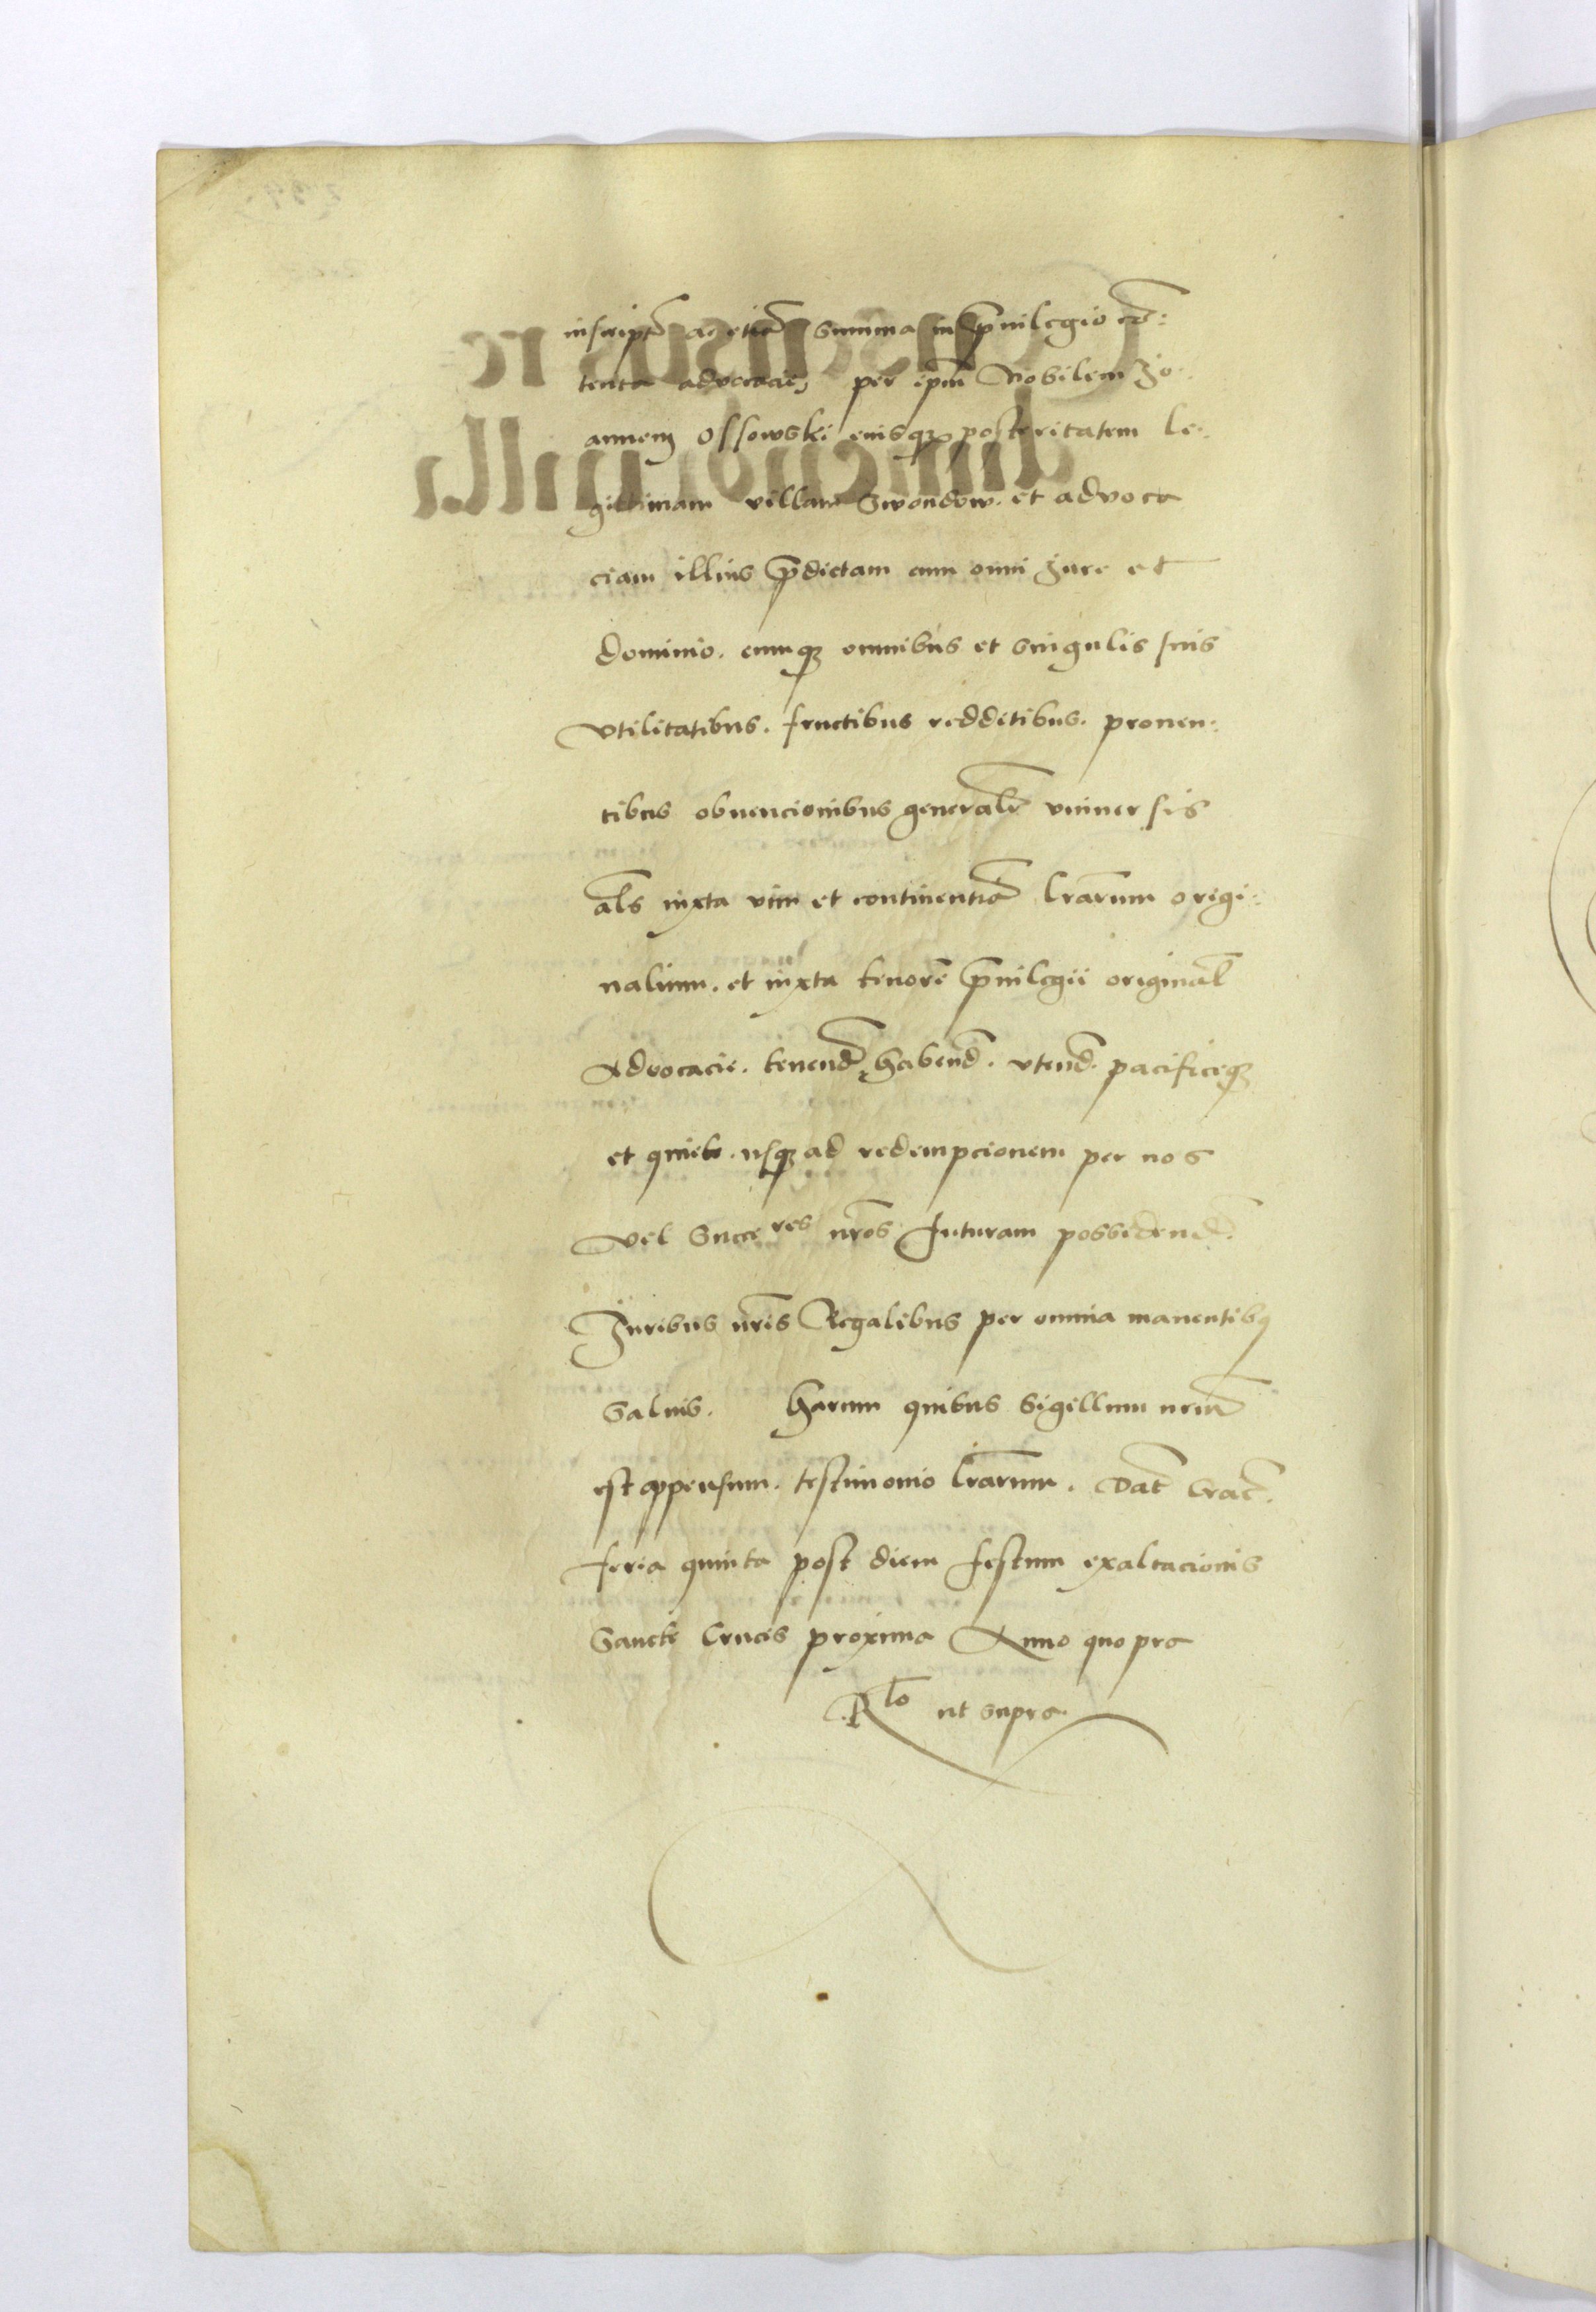 inscript̃ ac etiã summa in p̃uilegio cõ:
tenta advocacie, per ip̃m Nobilem Jo:
annem Ossowski eiusq; posteritatem le:
gittimam villam Swondow. et advoca
ciam illius p̃dictam cum omni Jure et
dominio. cumq; omnibus et singulis suis
vtilitatibus. fructibus redditibus. prouen:
tibus obuencionibus generalr̃ vniuersis
al̃s iuxta vim et continentiã lr̃arum origi:
nalium. et iuxta tenorẽ p̃uilegii original̃
Advocacie. tenend̃ habend̃. vtend̃. pacificeq;
et quiete. usq; ad redempcionem per nos
vel Succeres nr̃os futuram possidend̃.
Juribus nr̃is Regalibus per omnia manentibq
saluis. Harum quibus Sigillum nrũ
est appensum. testimonio lr̃arum. Dat̃ Crac̃.
feria quinta post diem festum exaltacionis
Sancte Crucis proxima Anno quo pra
Rl̃o ut supra